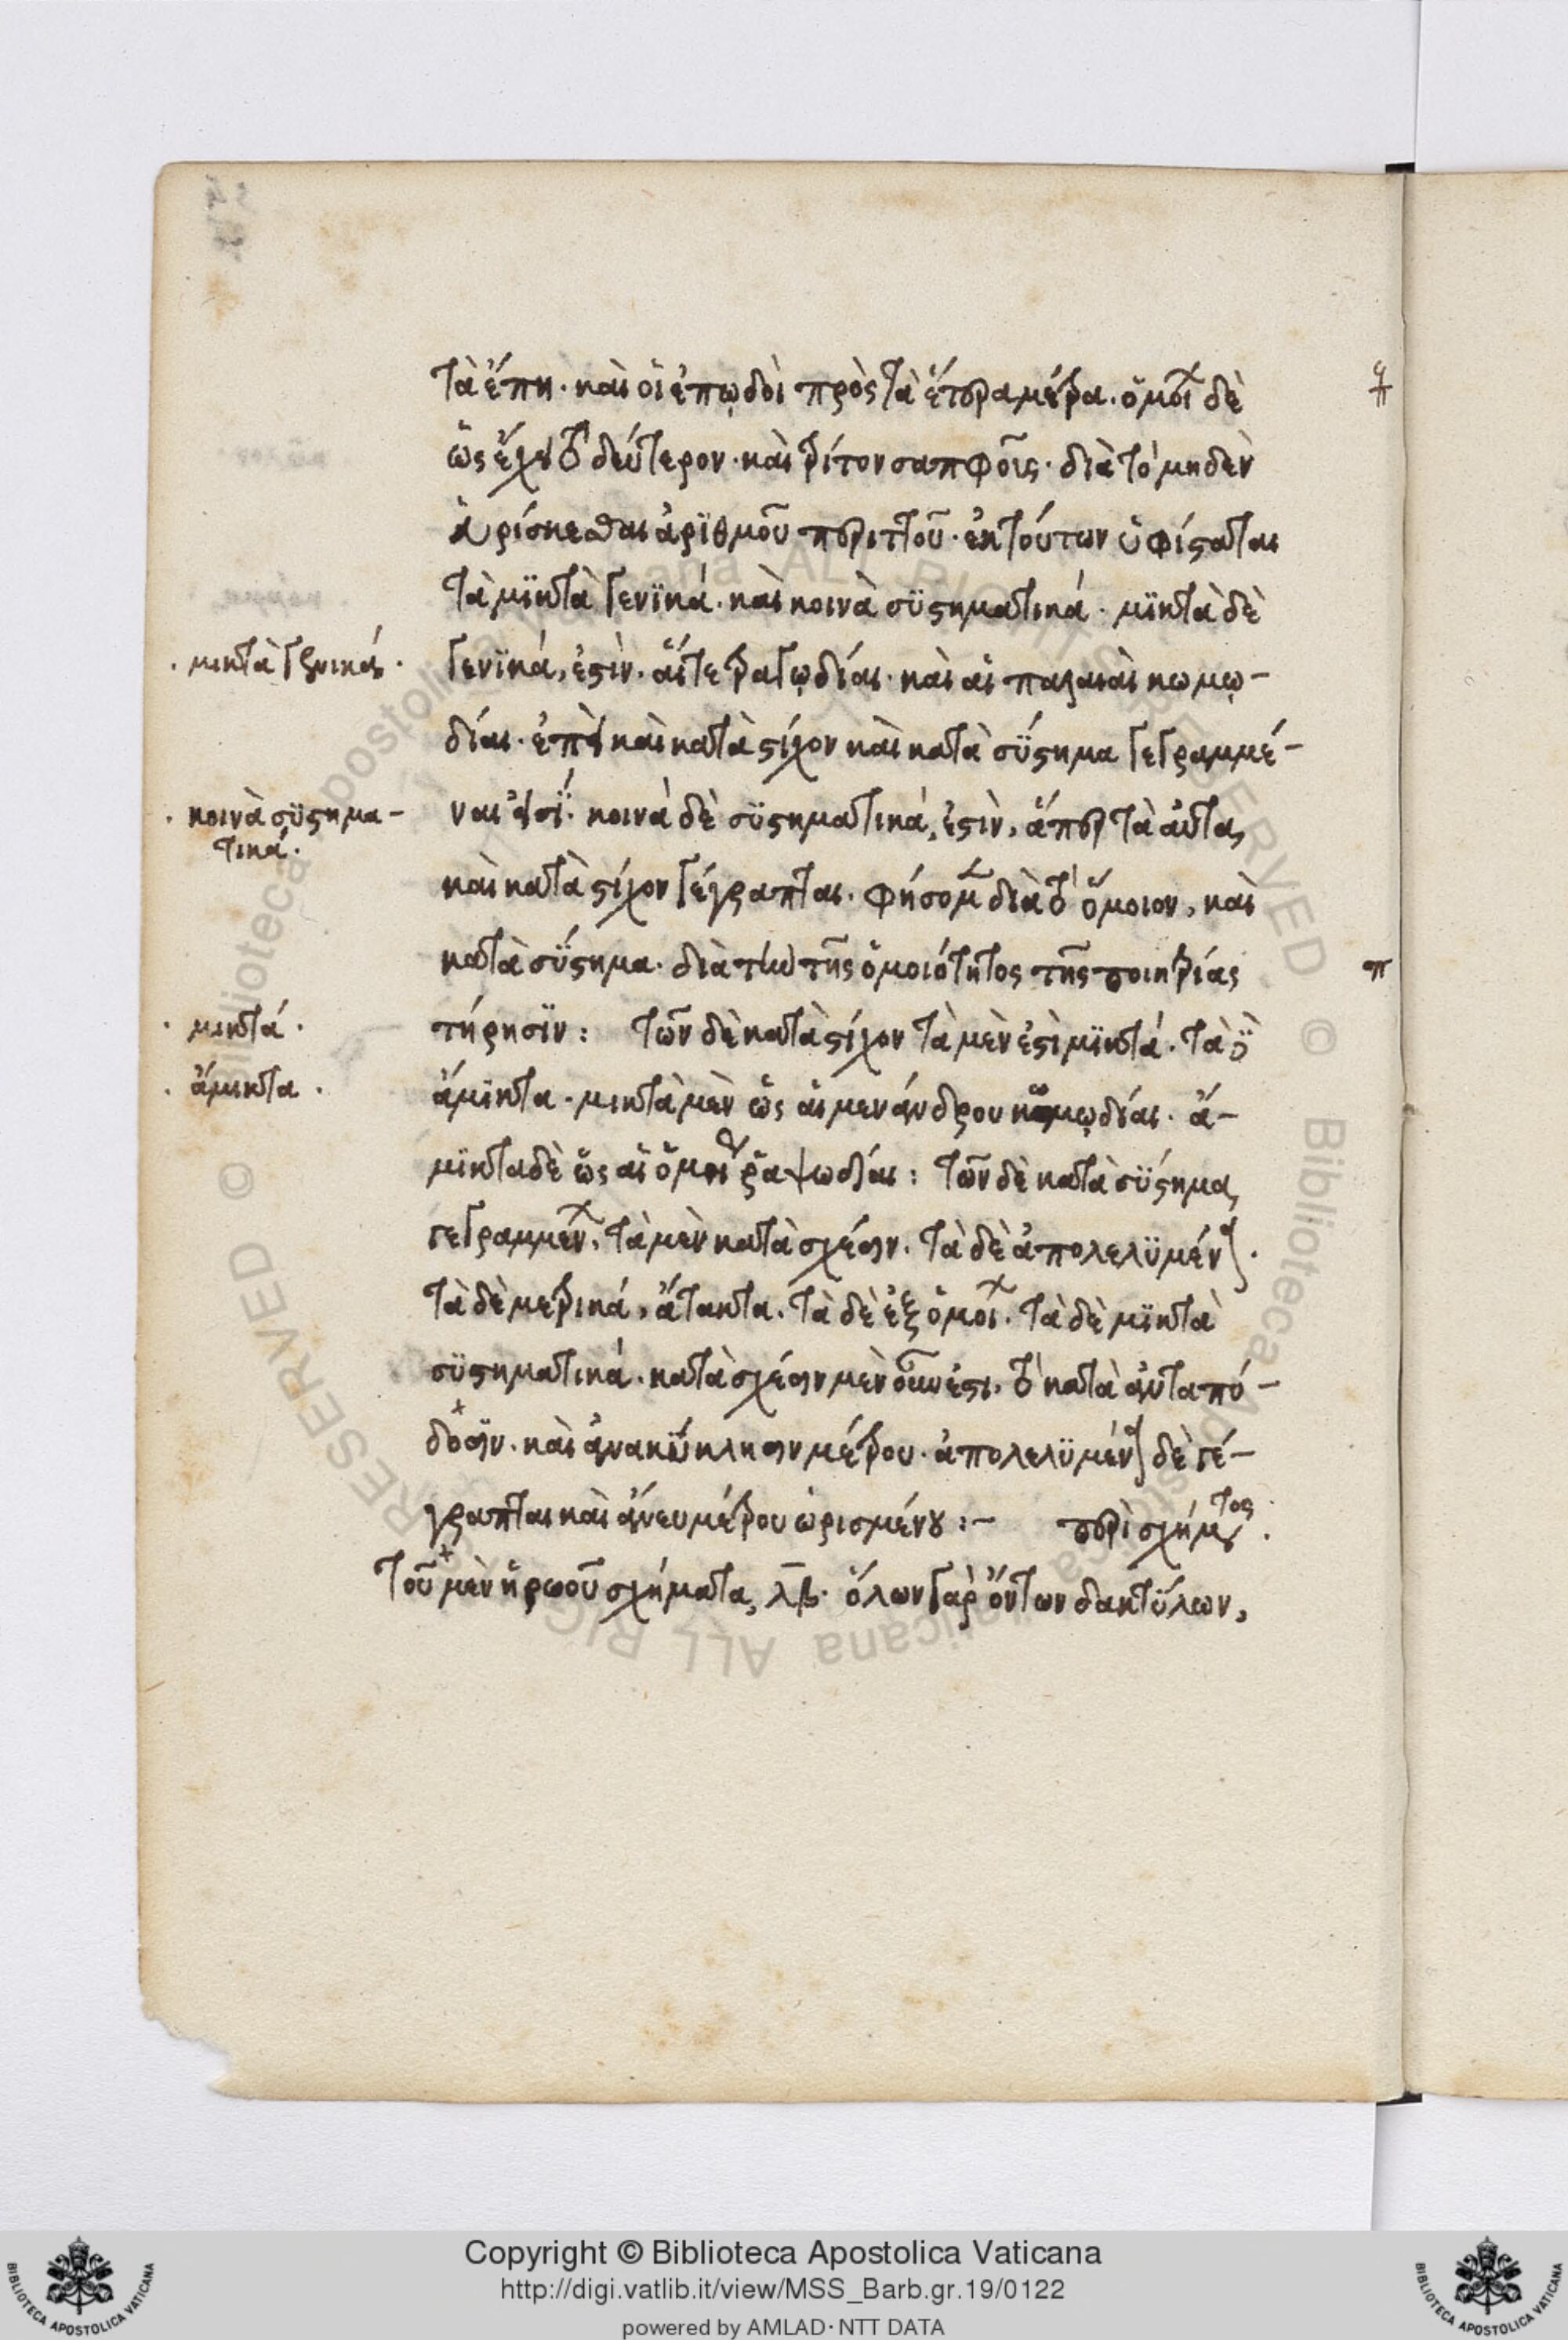 τὰ ἔπη· καὶ οἱ ἐπωδοὶ πρὸς τὰ ἕτερα μέτρα. ὁμοί δὲ
ὡς ἔχει τὸ δεύτερον· καὶ τρίτον σαπφοῦς· διὰ τὸ μηδὲν
εὑρίσκεσθαι ἀρϊθμοῦ περιττοῦ· ἐκ τούτων ὑφίσταται
τὰ μϊκτὰ γενϊκά· καὶ κοινὰ σϋστηματικά· μϊκτὰ δὲ
· μικτὰ γενικά·
γενϊκά, ἐστὶν· αἵ τε τραγῳδίαι· καὶ αἱ παλαιαὶ κωμῳ-
δίαι· ἐπεὶ καὶ κατὰ στίχον καὶ κατὰ σύστημα γεγραμμέ-
· κοινὰ σϋστημα-
τικά·
ναι εἰσί· κοινὰ δὲ σϋστηματικά, ἐστὶν, ἅπερ τὰ αὐτὰ,
καὶ κατὰ στίχον γέγραπται· φήσομ διὰ τὸ ὅμοιον, καὶ
κατὰ σύστημα· διὰ τὴν τῆς ὁμοιότητος τῆς ποιητρίας
π
τήρησϊν: τῶν δὲ κατὰ στίχον τὰ μὲν ἐστὶ μϊκτά· τὰ δὲ
· μικτά·
· ἄμικτα·
ἄμϊκτα· μικτὰ μὲν ὡς αἱ μενάνδρου κωμῳδίαι· ἄ-
μϊκτα δὲ ὡς αἱ ὁμηρου ῥαψωδίαι: τῶν δὲ κατὰ σύστημα,
γεγραμμέν, τὰ μὲν κατὰ σχέσιν· τὰ δὲ ἀπολελϋμένα·
τὰ δὲ μετρικά, ἄτακτα· τὰ δὲ ἐξ ὁμοί· τὰ δὲ μϊκτὰ
σϋστηματικά· κατὰ σχέσιν μὲν οὖν ἐστι, τὸ κατὰ ἀνταπό-
δοσϊν· καὶ ἀνακύκλησιν μέτρου· ἀπολελϋμένα δὲ γέ-
γραπται καὶ ἄνευ μέτρου ὡρισμένου:- περὶ σχήματος·
Τοῦ μὲν ἡρωοῦ σχήματα, λβ· ὅλων γὰρ ὄντων δακτύλων,
Copyright © Biblioteca Apostolica Vaticana
http://digi.vatlib.it/view/MSS_Barb.gr.19/0122
powered by AMLAD·NTT DATA